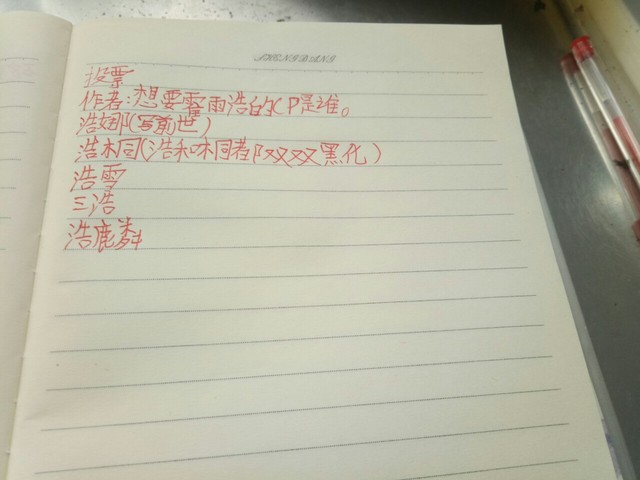 投票
作者:想要霍雨浩的CP是谁。
浩娜(写前世)
浩桐(浩和桐都双双黑化)
浩雪
三浩
浩麟